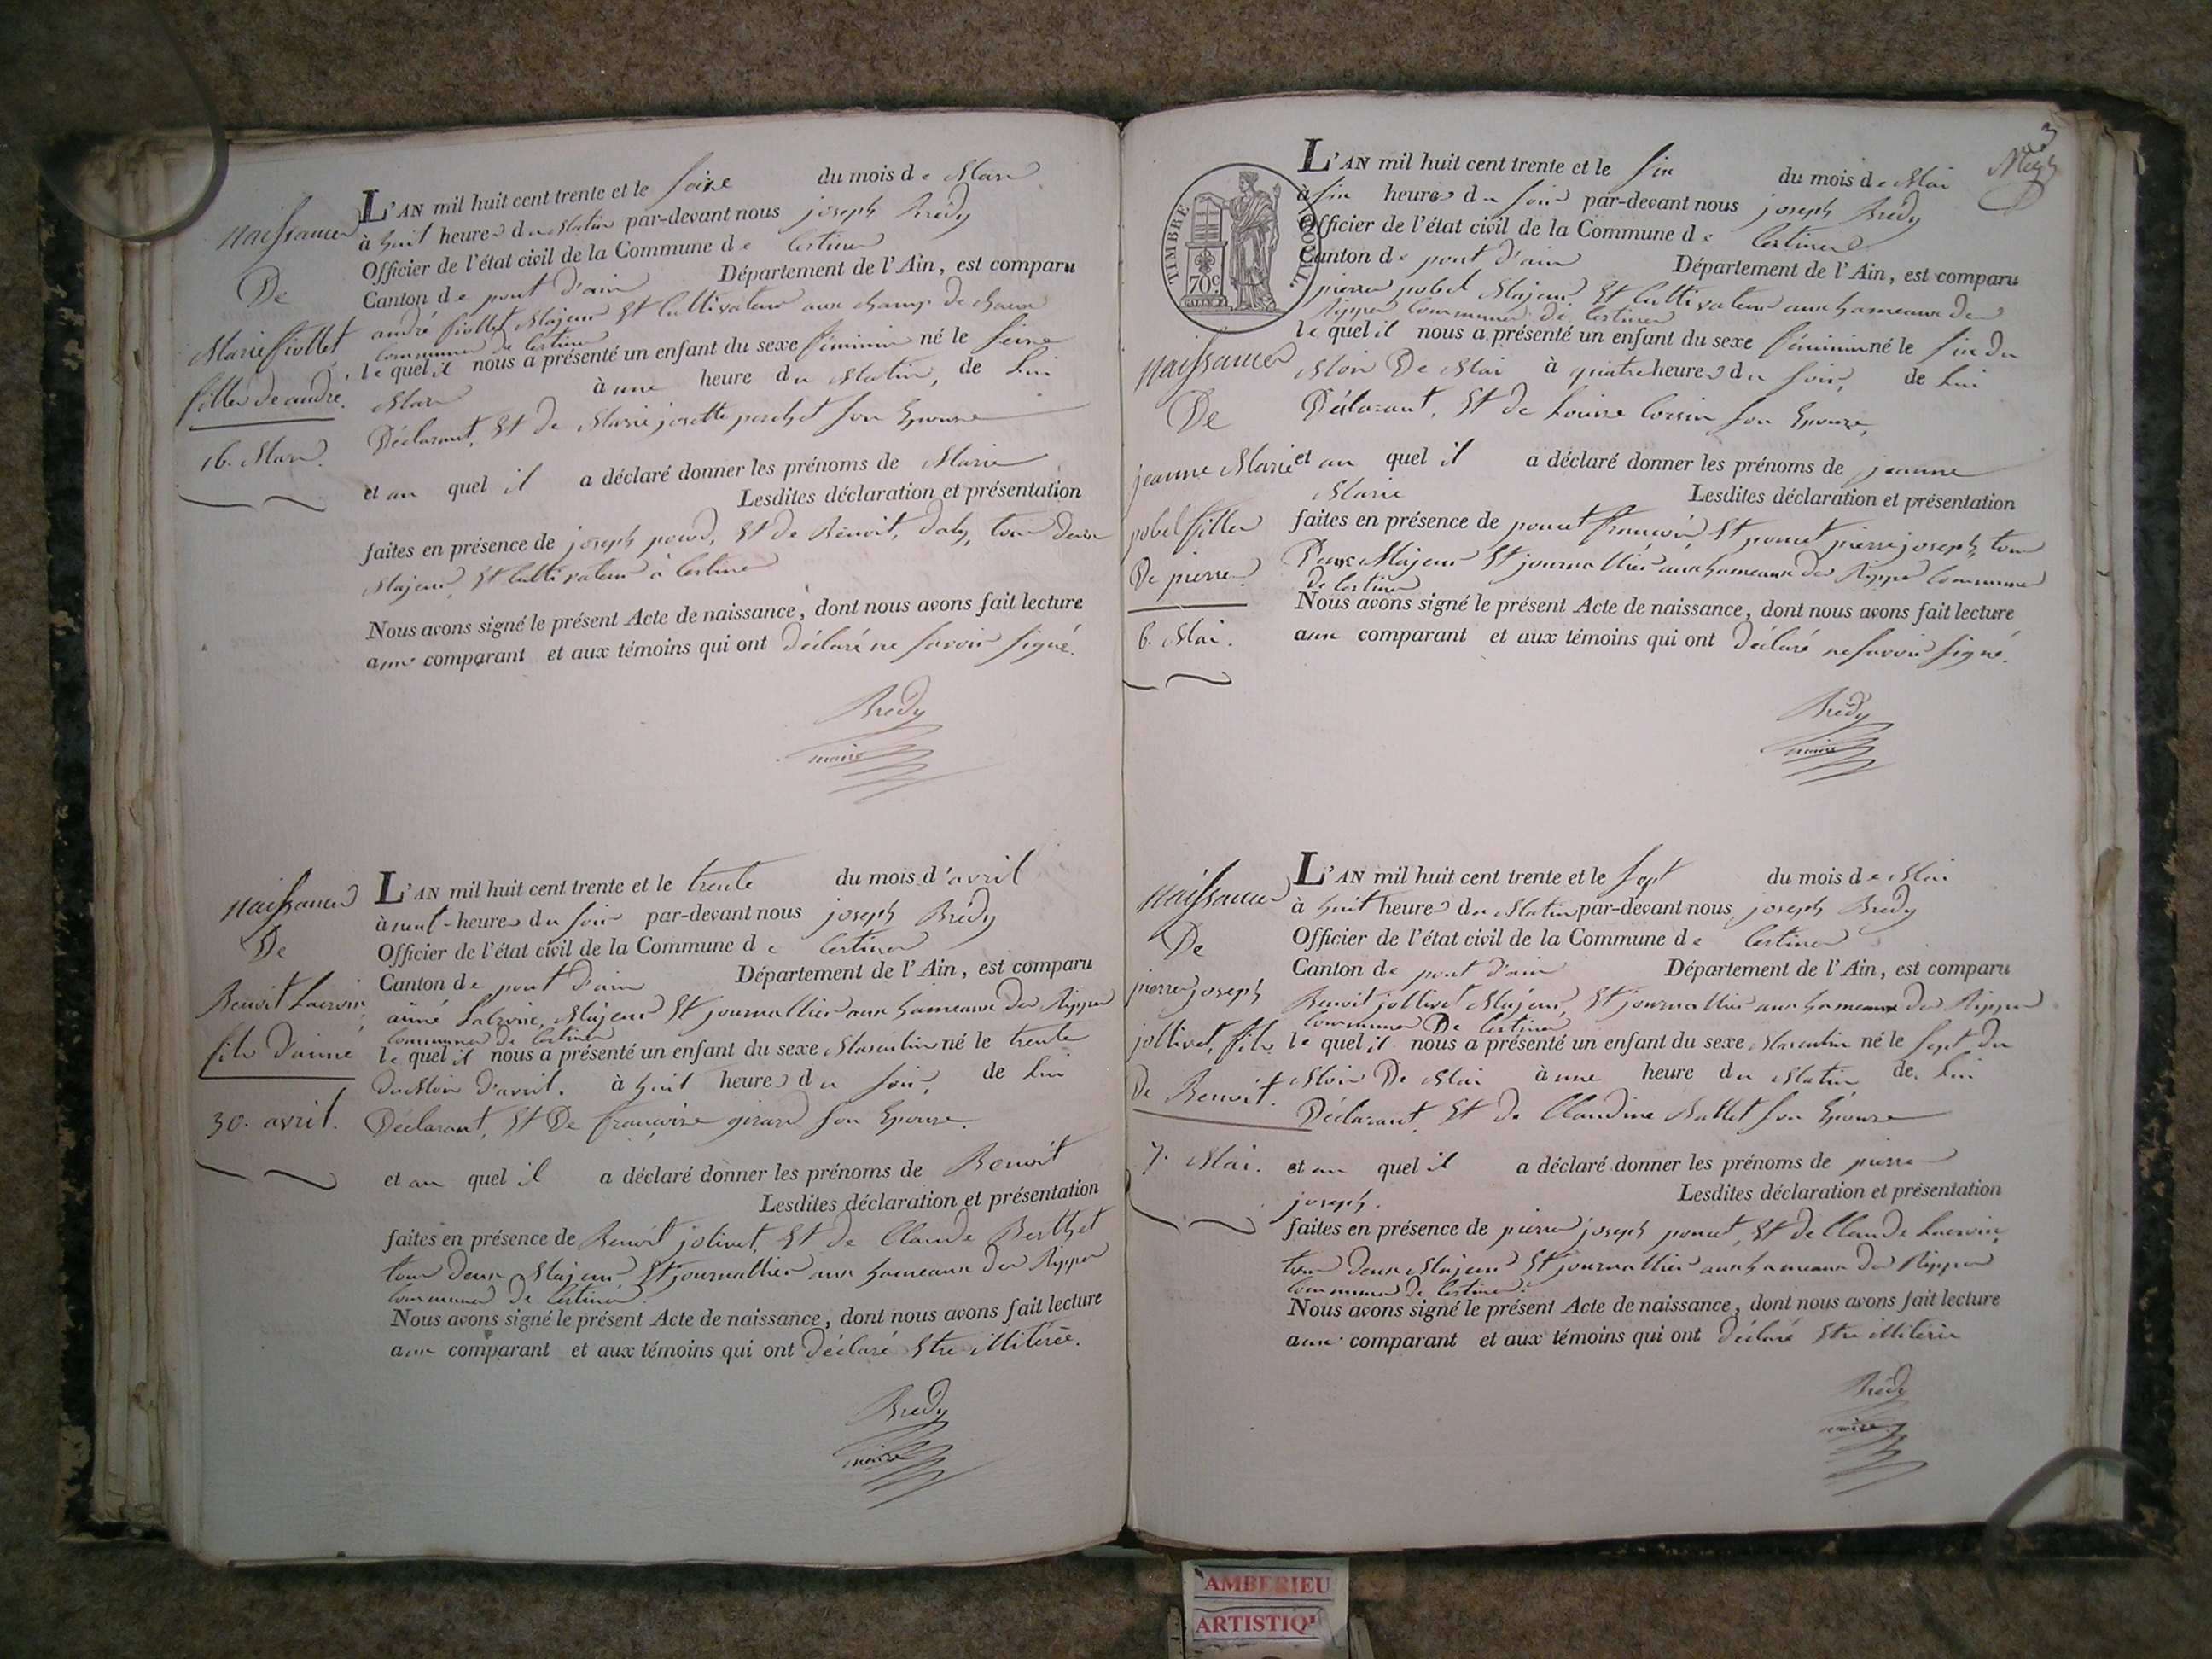 naissance
De
Marie fiollet
fille de andré.
16. Mars.
L'AN mil huit cent trente et le seize du mois de Mars
à huit heures du Matin par-devant nous joseph Brédy
Officier de l'état civil de la Commune de Certines
Canton de pont d'ain Département de l'Ain, est comparu
andré fiollet Majeur Et Cultivateur aux champ de
commune de Certines
le quel il nous a présenté un enfant du sexe féminin né le seize
Mars à une heure du Matin, de Lui
Déclarant, Et de Marie josette perchet son Epouse
et au quel il a déclaré donner les prénoms de Marie
Lesdites déclaration et présentation
faites en présence de joseph Et de Benoit, tous deux
Majeurs Et Cultivateurs à Certines
Nous avons signé le présent Acte de naissance, dont nous avons fait lecture
aux comparant et aux témoins qui ont déclaré ne savoir signé.
Brédy
maire
naissance
De
Benoit Lacroix,
fils d'aimé
30. avril.
L'AN mil huit cent trente et le trente du mois d'avril
à neuf heures du soir par-devant nous joseph Brédy
Officier de l'état civil de la Commune de Certines
Canton de pont d'ain Département de l'Ain, est comparu
aimé Lacroix, Majeur Et journallier aux hameaux des Rippes
commune de Certines
le quel il nous a présenté un enfant du sexe Masculin né le trente
du Mois d'avril. à huit heures du soir, de Lui
Déclarant, Et De françoise girard son Epouse.
et au quel il a déclaré donner les prénoms de Benoit
Lesdites déclaration et présentation
faites en présence de Benoit jolivet, Et de Claude Berthet
tous deux Majeurs Et journalliers aux hameaux des Rippes
Commune de Certines.
Nous avons signé le présent Acte de naissance, dont nous avons fait lecture
aux comparant et aux témoins qui ont Déclaré Etre illitérée.
Brédy
maire
3
TIMBRE ROYAL
70c
naissance
De
jeanne Marie
pobel fille
De pierre.
6. Mai.
L'AN mil huit cent trente et le six du mois de Mai
à six heures du soir par-devant nous joseph Brédy
Officier de l'état civil de la Commune de Certines
Canton de pont d'ain Département de l'Ain, est comparu
pierre pobel Majeur, Et Cultivateur aux hameaux des
Rippes Commune de Certines
le quel il nous a présenté un enfant du sexe féminin né le six du
Mois De Mai à quatre heures du soir, de Lui
Déclarant, Et de Louise Corsin son Epouse,
et au quel il a déclaré donner les prénoms de jeanne
Marie Lesdites déclaration et présentation
faites en présence de poncet françois, Et poncet pierre joseph, tous
Deux Majeurs Et journalliers aux hameaux des Rippes Commune
De Certines
Nous avons signé le présent Acte de naissance, dont nous avons fait lecture
aux comparant et aux témoins qui ont Déclaré ne savoir signé.
Brédy
maire
naissance
De
pierre joseph
jollivet, fils
de Benoit.
7. Mai.
L'AN mil huit cent trente et le sept du mois de Mai
à huit heures du Matin par-devant nous joseph Brédy
Officier de l'état civil de la Commune de Certines
Canton de pont d'ain Département de l'Ain, est comparu
Benoit jollivet Majeur, Et journallier aux hameaux des Rippes
Commune De Certines
le quel il nous a présenté un enfant du sexe Masculin né le sept du
Mois De Mai à une heure du Matin de Lui
Déclarant Et de Claudine Ballet son Epouse
et au quel il a déclaré donner les prénoms de pierre
joseph. Lesdites déclaration et présentation
faites en présence de pierre joseph poncet, Et de Claude Lacroix,
tous deux Majeurs Et journalliers aux hameaux des Rippes
Commune de Certines.
Nous avons signé le présent Acte de naissance, dont nous avons fait lecture
aux comparant et aux témoins qui ont Déclaré Etre illitérée
Brédy
maire
AMBERIEU
ARTISTIQ